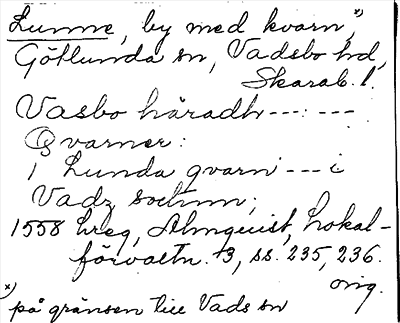 Lunne, by med kvarn,*)
Götlunda sn, Vadsbo hd,
Skarab. l.
Vasbo häradh---:---
Qvarner:
1 Lunda qvarn---i
Vadz sochnn;
1558 hreg, Almquist, Lokal-
förvaltn. 3, ss. 235, 236.
orig.
*) på gränsen till Vads sn